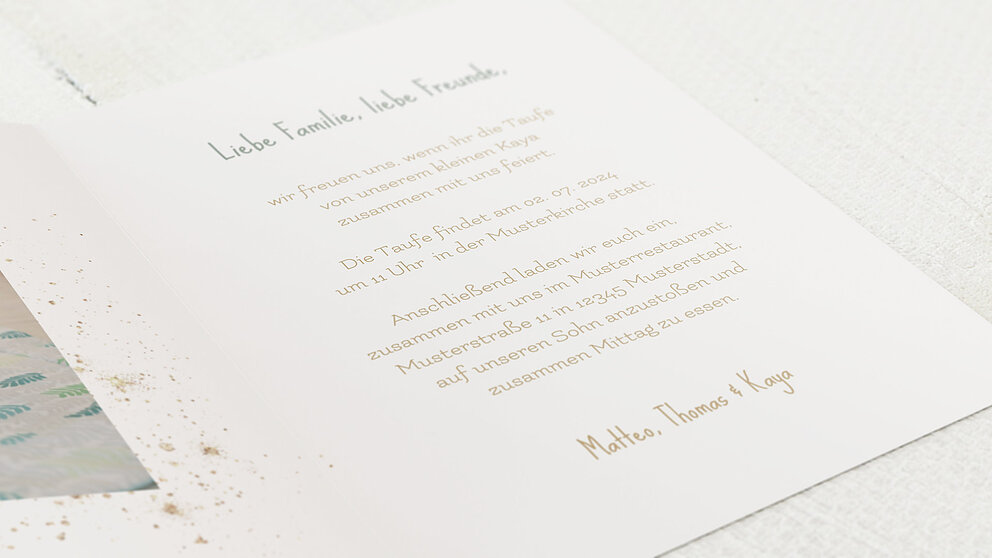 Liebe Familie, liebe Freunde,
wir freuen uns, wenn ihr die Taufe
von unserem kleinen Kaya
zusammen mit uns feiert.
Die Taufe findet am 02. 07. 2024
um 11 Uhr in der Musterkirche statt.
Anschließend laden wir euch ein,
zusammen mit uns im Musterrestaurant,
Musterstraße 11 in 12345 Musterstadt,
auf unseren Sohn anzustoßen und
zusammen Mittag zu essen.
Matteo, Thomas & Kaya